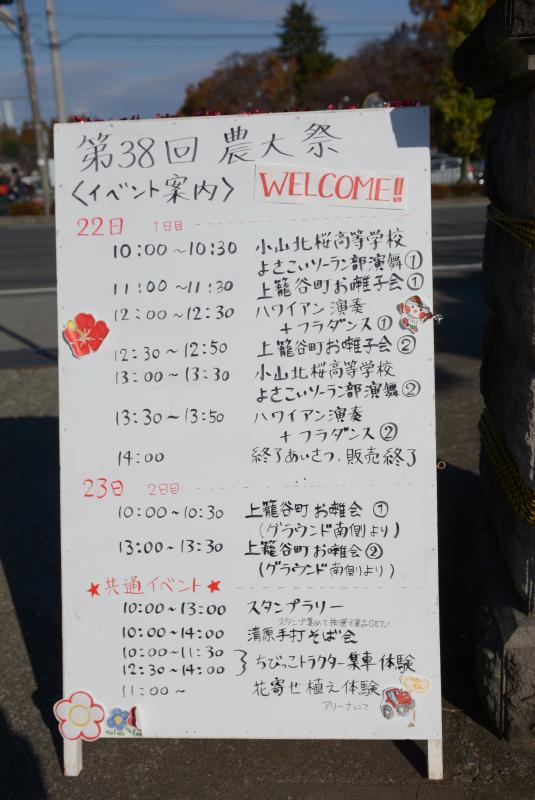 第38回 農大祭
〈イベント案内〉 WELCOME!
22日 1日目
10:00～10:30 小山北桜高等学校
よさこいソーラン部演舞①
11:00～11:30 上籠谷町お囃子会①
12:00～12:30 ハワイアン演奏
+フラダンス①
12:30～12:50 上籠谷町お囃子会②
13:00～13:30 小山北桜高等学校
よさこいソーラン部演舞②
13:30～13:50 ハワイアン演奏
+フラダンス②
14:00 終了あいさつ、販売終了
23日 2日目
10:00～10:30 上籠谷町お囃会 ①
(グラウンド南側より)
13:00～13:30 上籠谷町お囃会②
(グラウンド南側より)
★共通イベント★
10:00～13:00 スタンプラリー
スタンプ集めて抽選で景品GET!
10:00～14:00 清原手打そば会
10:00～11:30
12:30～14:00 } ちびっこトラクター乗車体験
11:00～ 花寄せ植え体験
アリーナにて